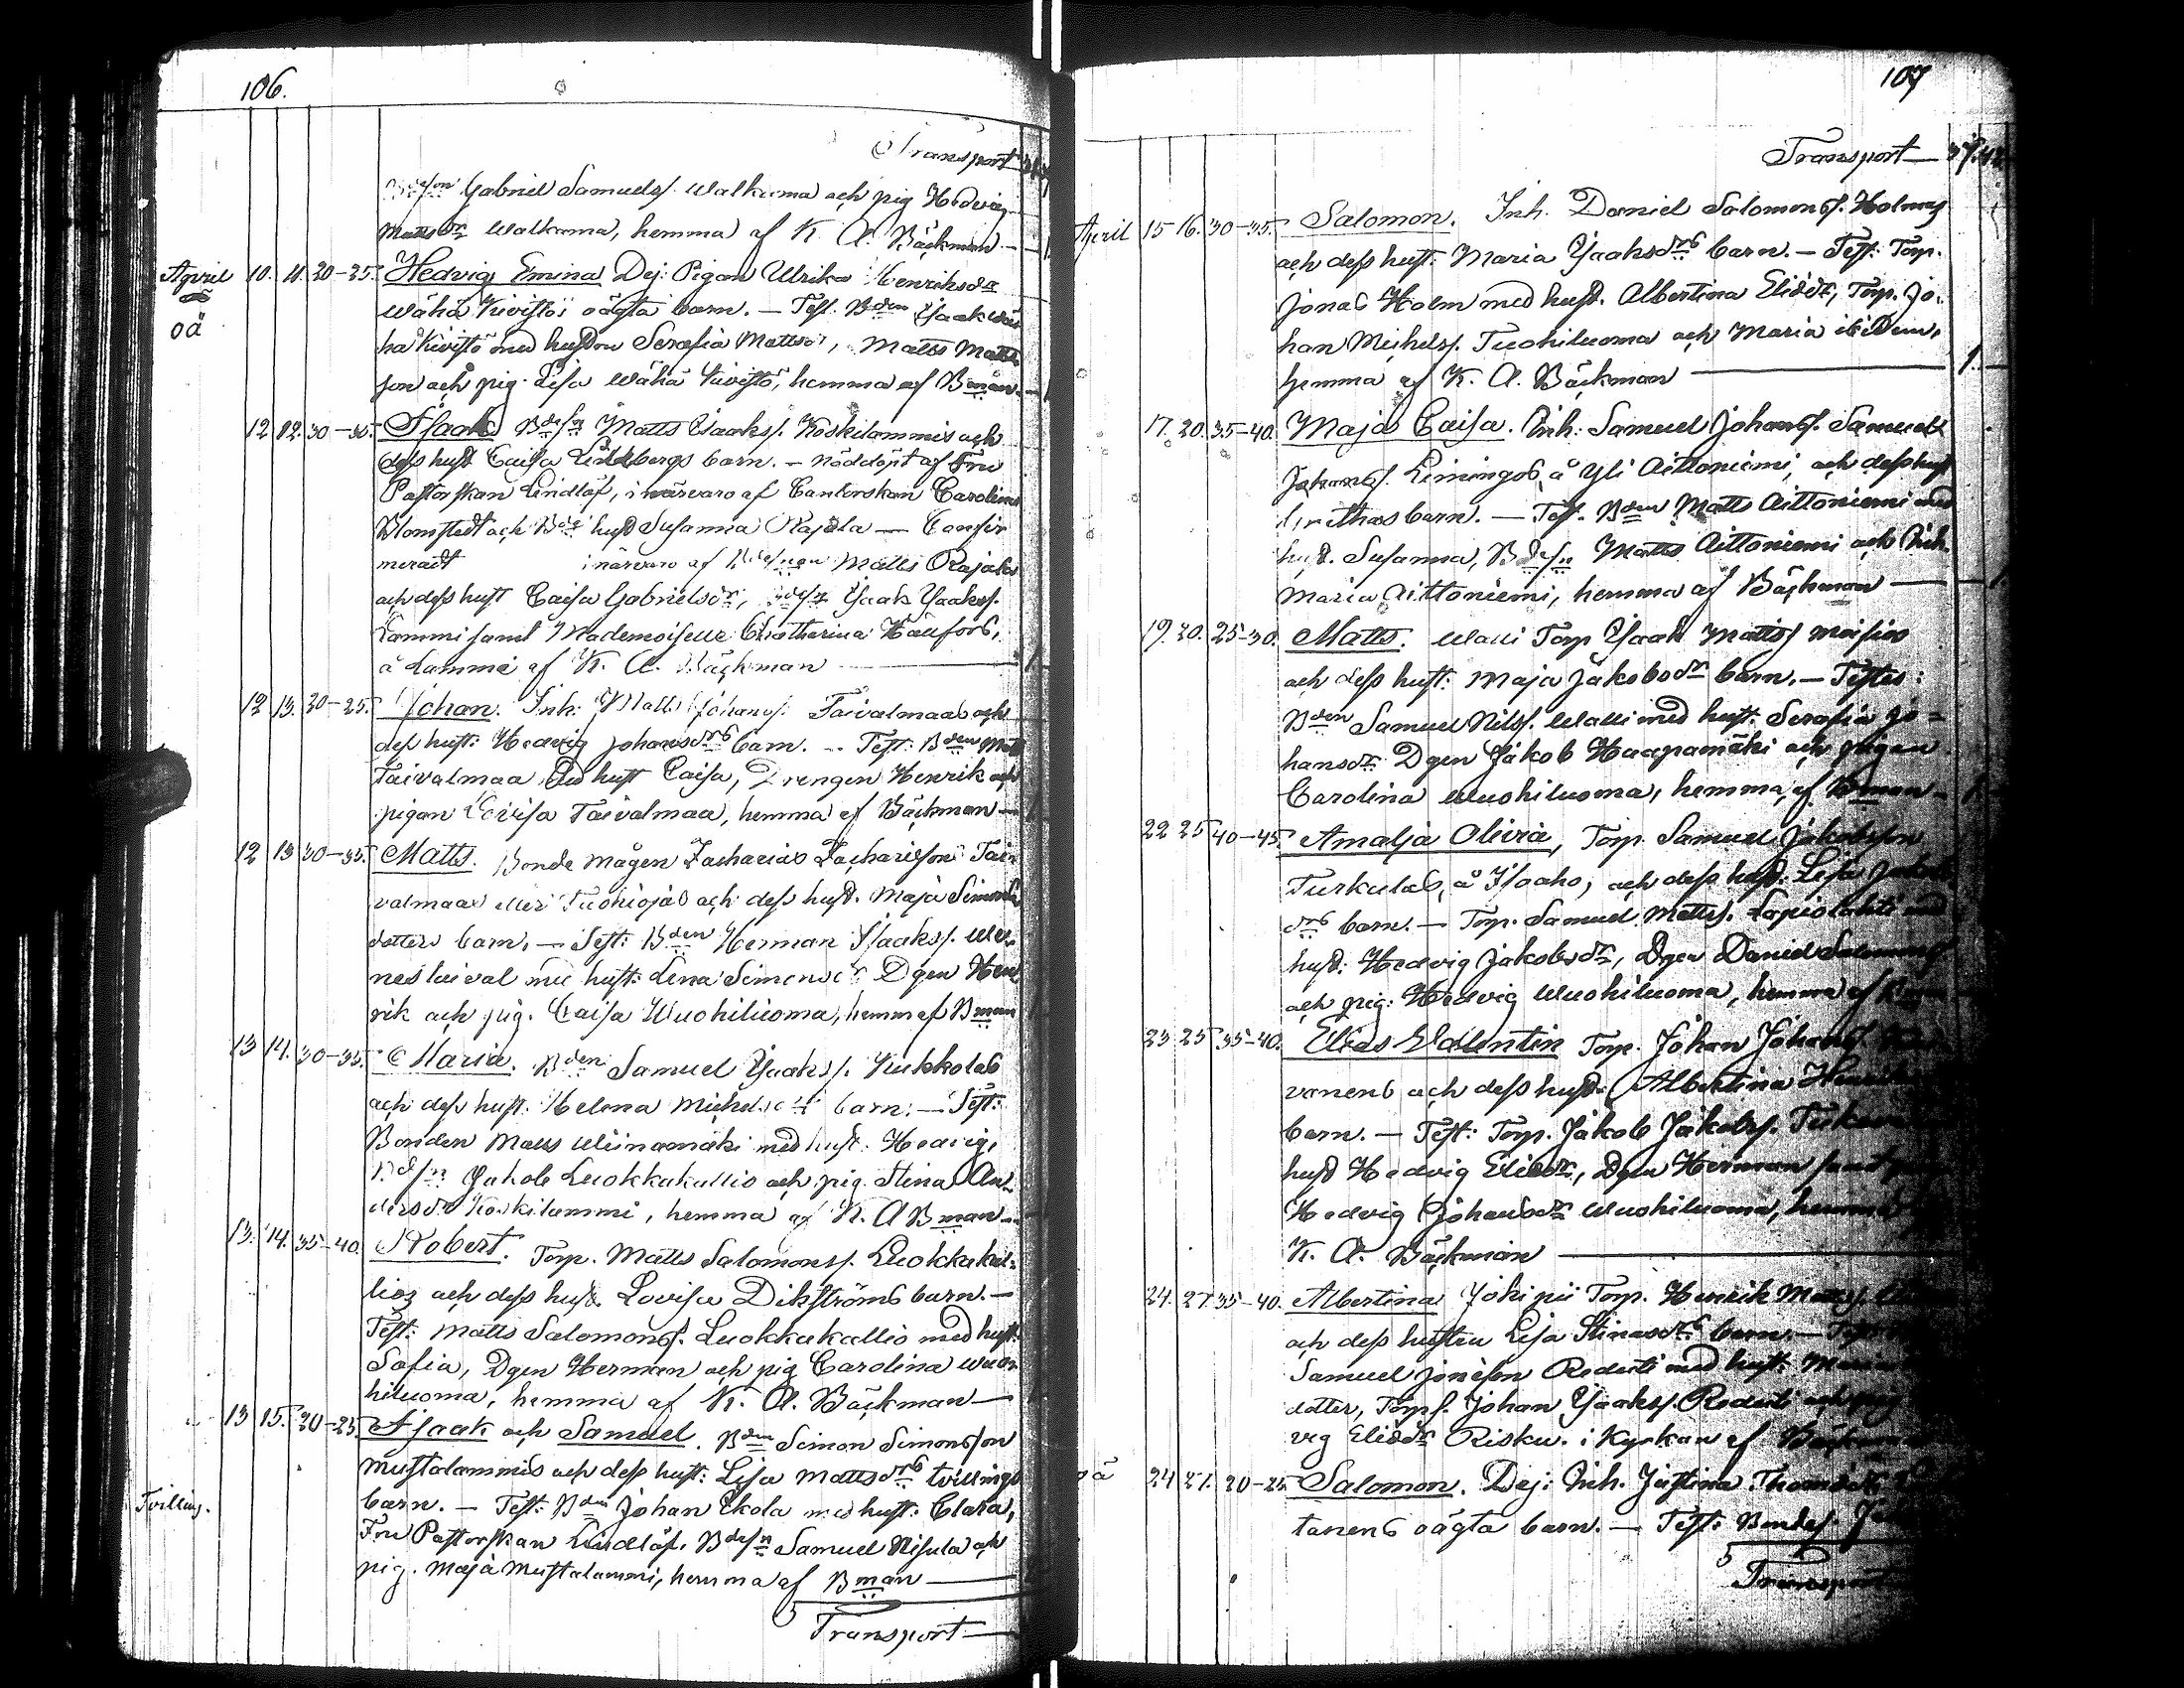 106.
Transport
Gabriel Samuelss. Walkama och pig Hedvig
Mattsdr Walkama, hemma af K. A. Bäckman
April 10. 11. 20-25. Hedvig Emina Dej: Pigan Ulrika Henriksdr
oä
Wähä Kivistös oägta barn. - Test. Bden Isaak Wä
hä Kivistö med hustru Serafia Mattsdr, Matts Matts
son och pig. Lisa Wähä Kivistö, hemma af Bman
12 12. 30-35. Isaak Bdesn Matts Isaakss. Koskilammis och
dess hust Caisa Lindbergs barn. - nöddöpt af Fru
Pastorskan Lindlöf, i närvaro af Cantorskan Carolina
Blomstedt och Bde hust Susanna Rajala - Confir
meradt i närvaro af Matts Rajala
och dess hust Caisa Gabrielsdr, Isaak Isaakss.
Lammi samt Mademoiselle Catharina Häufors,
å Lammi af K. A. Bäckman
12 13. 20-25. Johan. Inh: Matts Johanss. Taivalmaas och
dess hust: Hedvig Johansdrs barn. - Test: Bden Matts
Taivalmaa hust Caisa, Drengen Henrik och
pigan Lovisa Taivalmaa, hemma af Bäckman
12 13 30-35. Matts. Bonde mågen Zacharias Zachariesson Tai
valmaas eller Tuohiojas och dess hust. Maja Simons
dotters barn. - Test: Bden Herman Isaakss. We
nestaival med hust: Lena Simonsdr Dgen Hen
rik och pig. Caisa Wuohiluoma, hemma af Bman
13 14. 30-35. Maria. Bden Samuel Isaakss. Kukkolas
och dess hust. Helena Michelsdrs barn. - Test:
Bonden Matts Wiinamäki med hust. Hedvig,
Bdesn Jakob Luokkakallio och pig. Stina An
dersdr Koskilammi, hemma af K. A Bman
13. 14. 35-40. Robert. Torp. Matts Salomonss. Luokkakal=
lios och dess hust. Lovisa Dikströms barn. -
Test: Matts Salomonss. Luokkakallio med hust:
Sofia, Dgen Herman och pig Carolina Wuo
hiluoma, hemma af K. A. Bäckman
13 15. 20-25 Isaak och Samuel. Bden Simon Simonsson
Mustalammis och dess hust: Lisa Mattsdrs tvillings
Tvilling.
barn. - Test: Bden Johan Ekola med hust: Clara,
Fru Pastorskan Lindlöf, Bdesn Samuel Nisula och
pig. Maja Mustalammi, hemma af Bman
Transport
107
Transport
April 15 16. 30-35. Salomon. Inh. Daniel Salomonss. Holms
och dess hust: Maria Isaksdrs barn. - Test: Torp.
Jonas Holm med hust. Albertina Eliedr, Torp. Jo
han Michelss. Tuohiluoma och Maria ibidem,
hemma af K. A. Bäckman 1.
17. 20. 35-40. Maja Caisa. Inh: Samuel Johanss. Samuel
Johanss. Leiningos å Yli Aittoniemi, och dess hust
Grethas barn. - Test. Bden Matts Aittoniemi med
hust. Susanna, Bdesn Matts Aittoniemi och Inh.
Maria Aittoniemi, hemma af Bäckman 1
19. 20. 25-30. Matts. Walli Torp Isaak Mattss Moisios
och dess hust: Maja Jakobsdrs barn. - Testes:
Bden Samuel Nilss. Walli med hust: Serafia Jo=
hansdr Dgen Jakob Haapamäki och pigan
Carolina Wuohiluoma, hemma af Bman 1
22 25 40-45. Amalja Olivia, Torp. Samuel Jakobsson
Turkulas, å Isoaho, och dess hust: Lisa Jakobs
drs barn. - Torp. Samuel Mattss. Lapiolahti med
hust: Hedvig Jakobsdr, Dgen Daniel Salomonss
och pig: Hedvig Wuohiluoma, hemma af
23 25 35-40. Elias Valentin Torp. Johan Johanss
vanens och dess hust. Albertina
barn. - Test: Torp. Jakob Jakobss.
hust Hedvig Eliedr, Dgen Herman samt
Hedvig Johansdr Wuohiluoma, hemma
K. A. Bäckman
24. 27. 35-40. Albertina Jokipii Torp. Henrik
och dess hustru Lisa Stinasdrs barn. -
Samuel Jonesson Reduti med hust:
dotter, Torps. Johan Isaakss. Reduti
vig Eliedr Risku. i Kyrkan af
oä 24 27. 20-25 Salomon. Dej: Inh. Justina
tanens oägta barn. - Test: Bondes.
Transport